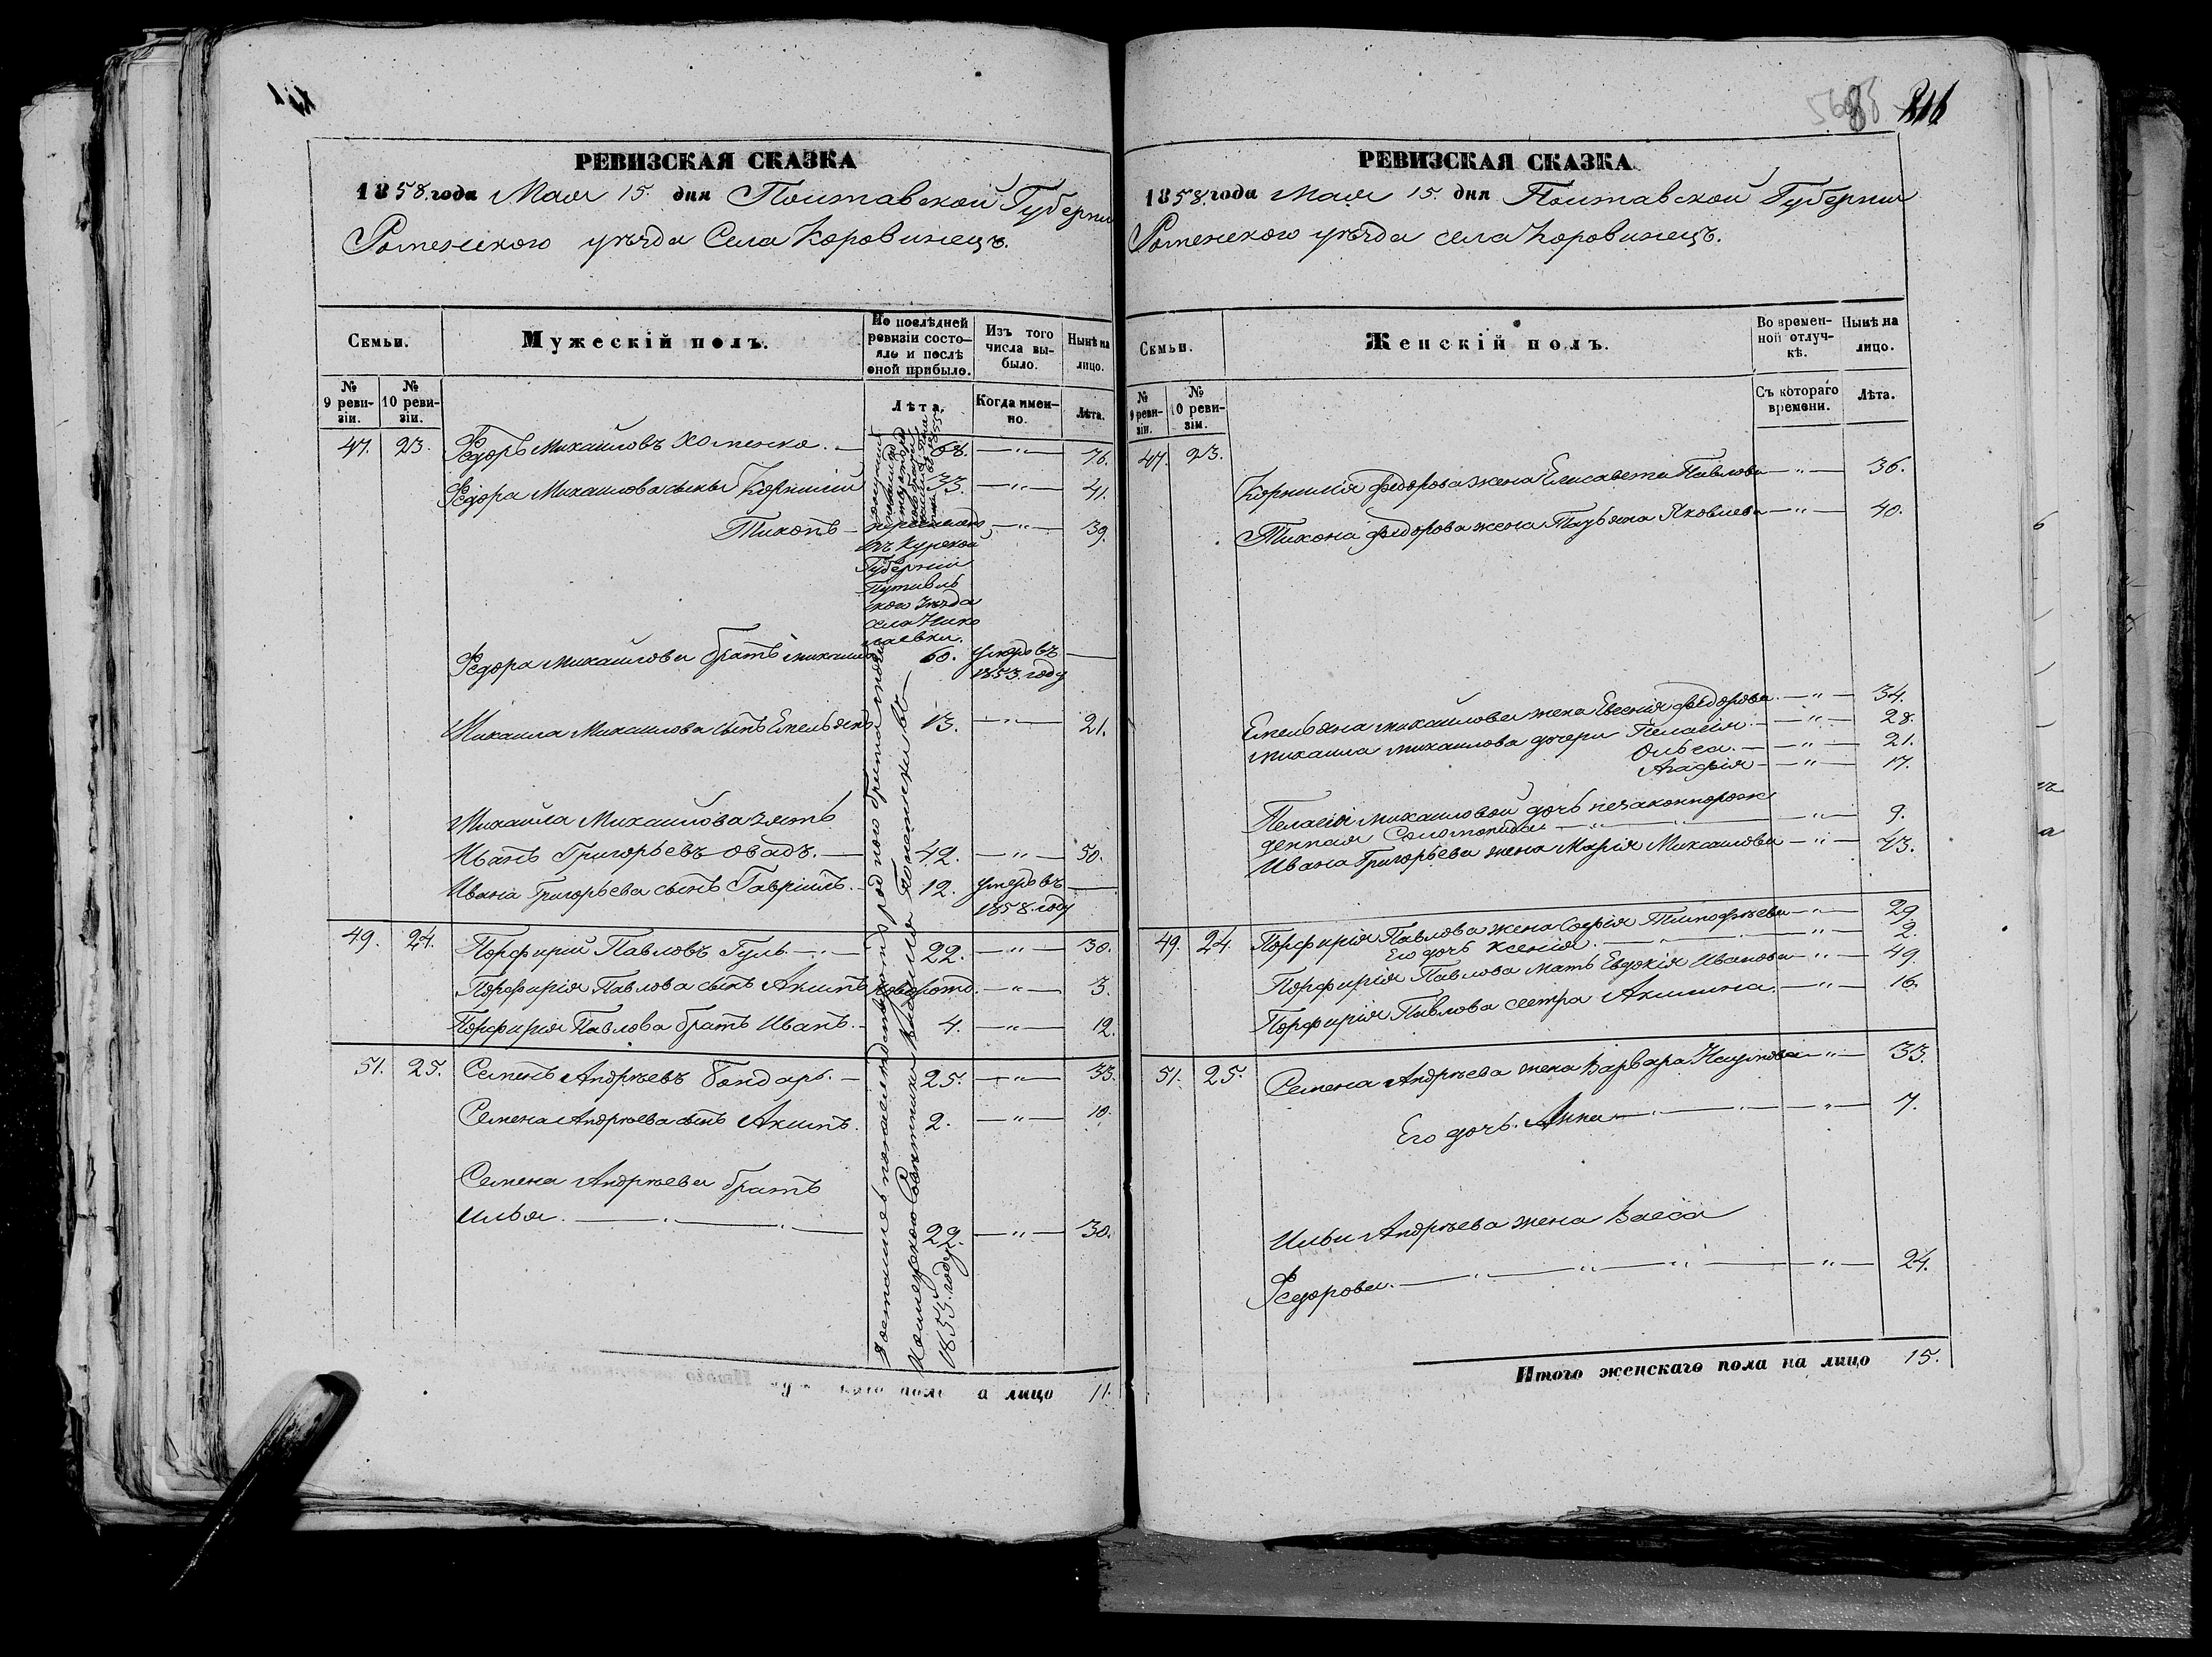 РЕВИЗСКАЯ СКАЗКА
1858. года Мая 15. дня Полтавской Губерни
Роменского уѣзда Села Коровинецъ.
Семьи.
Мужескій полъ.
По послѣдней ревизіи состо-
яло и послѣ
оной прибыло.
Изъ того
числа вы-
было.
Нынѣ на
лицо.
№
9 реви-
зіи.
№
10 реви-
зіи.
Лѣта.
Когда имен-
но.
Лѣта.
47. 23. Федоръ Михайловъ Хоменко. 68. — " — 76.
Федора Михайлова сыны Корнилій 33. — " — 41.
Тихонъ — — " — 39.
изъ Курской
Губерніи
Путивль
ского уѣзда
села Нико
лаевки.
Федора Михайлова братъ Михаила 60. умеръ въ —
1853. году
Михаила Михайлова сынъ Емельянъ 13. — " — 21.
Михаила Михайлова зять
Иванъ Григорьевъ Овадъ. — 42. — " — 50.
Ивана Григорьева сынъ Гавріилъ. 12. умеръ въ —
1858. году
49. 24. Порфирій Павловъ Гуль. — " — 22. — " — 30.
Порфирія Павлова сынъ Акимъ новорожд. — " — 3.
Порфирія Павлова братъ Иванъ. 4. — " — 12.
51. 25. Семенъ Андреевъ Бондарь. — 25. — " — 33.
Семена Андреева сынъ Акимъ. 2. — " — 10.
Семена Андреева братъ
Илья. 22. — " — 30.
1855. году
а лицо 11.
206
РЕВИЗСКАЯ СКАЗКА
1858. года Мая 15. дня Полтавской Губерніи
Роменского уѣзда села Коровинецъ.
Семьи.
Женскій полъ.
Во времен-
ной отлуч-
кѣ.
Нынѣ на
лицо.
№
9 реви-
зіи.
№
10 реви-
зіи.
Съ котораго
времени.
Лѣта.
47. 23.
Корнилія Федорова жена Елисавета Павлова — " — 36.
Тихона Федорова жена Татьяна Яковлева — " — 40.
Емельяна Михайлова жена Евгенія Федорова — " — 34.
Михаила Михайлова дочери Пелагія — " — 28.
Ольга. — " — 21.
Агафія — " — 17.
Пелагіи Михайловой дочь незаконнорож
денная Соломонида — " — 9.
Ивана Григорьева жена Марія Михайлова — " — 43.
49. 24. Порфирія Павлова жена Софія Тимофѣева — " — 29.
Его дочь Ксенія. — " — 2.
Порфирія Павлова мать Евдокія Иванова — " — 49.
Порфирія Павлова сестра Акилина. — " — 16.
51. 25. Семена Андреева жена Варвара Наумова — " — 33.
Его дочь. Анна — " — 7.
Ильи Андреева жена Васса
Федорова. — " — 24.
Итого женскаго пола на лицо 15.